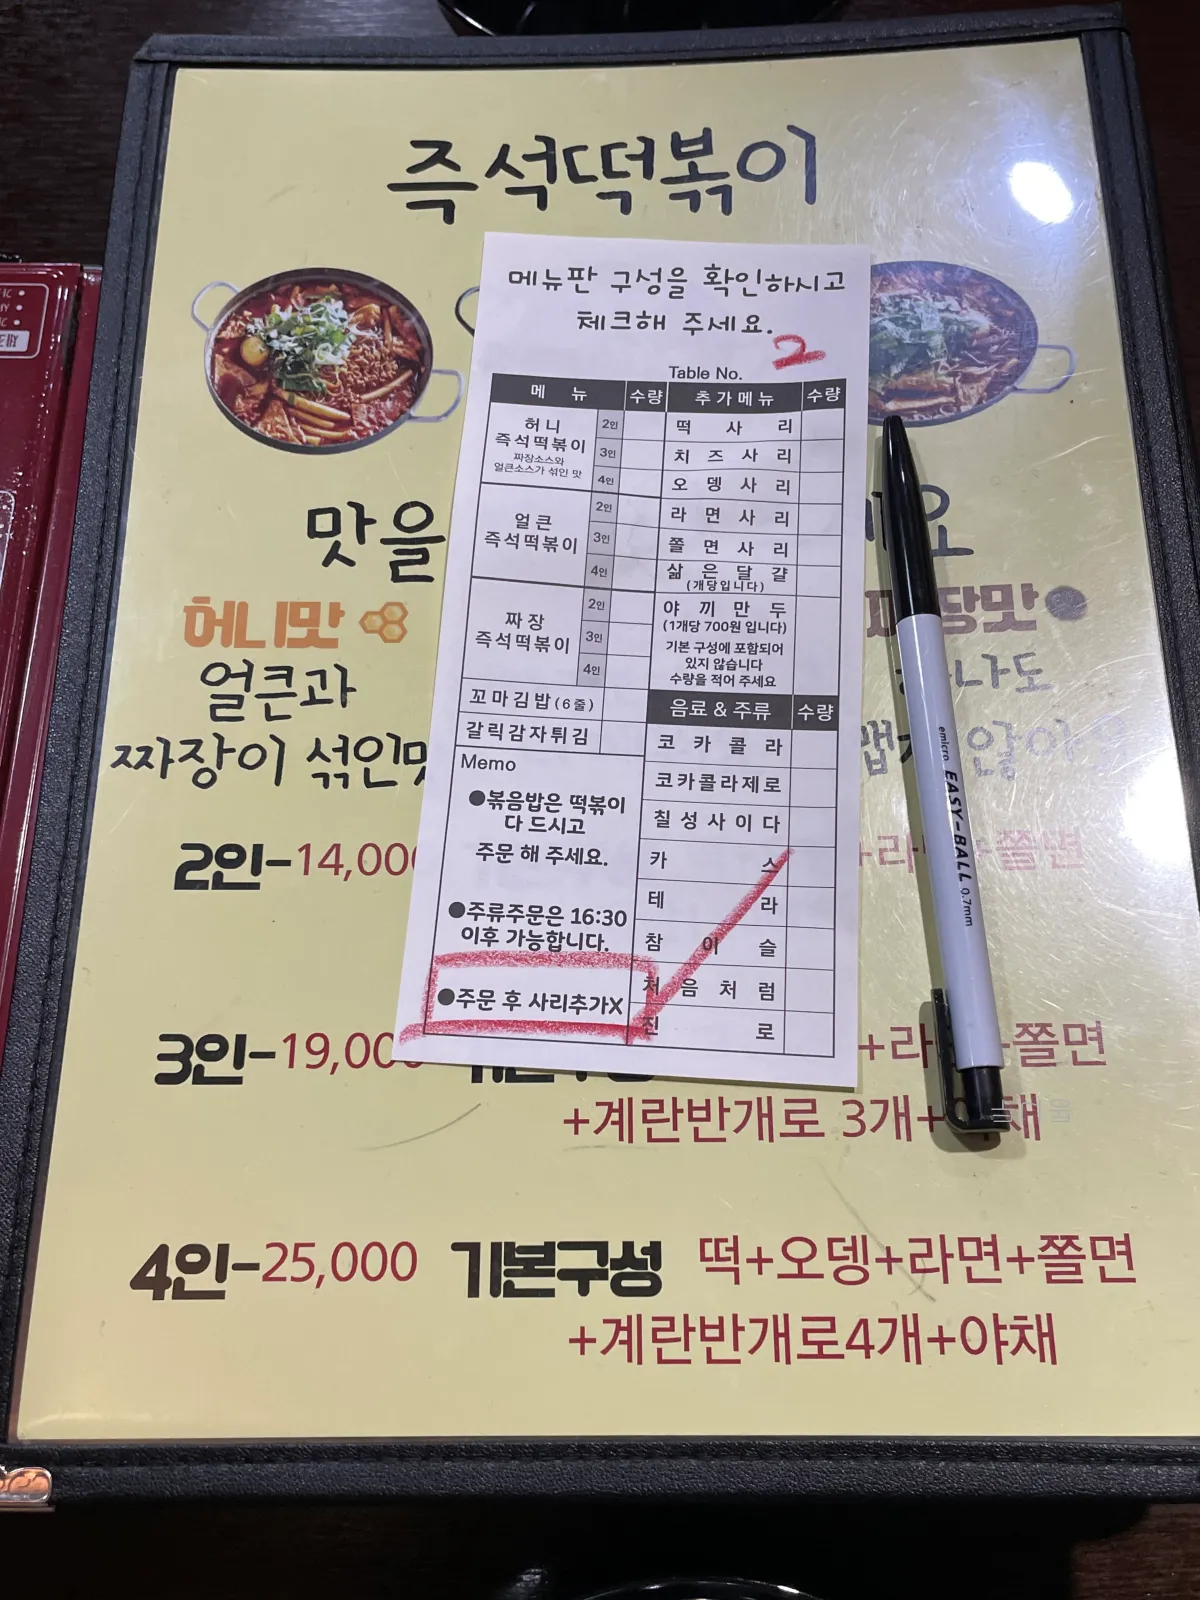 즉석떡볶이
메뉴판 구성을 확인하시고
체크해 주세요.
Table No. 2
메 뉴 수량 추가메뉴 수량
허니
즉석떡볶이
짜장소스와
얼큰소스가 섞인 맛
2인
3인
4인
얼큰
즉석떡볶이
2인
3인
4인
짜장
즉석떡볶이
2인
3인
4인
꼬마김밥(6줄)
갈릭감자튀김
Memo
●볶음밥은 떡볶이
다 드시고
주문 해 주세요.
●주류주문은 16:30
이후 가능합니다.
●주문 후 사리추가X
떡 사 리
치 즈 사 리
오 뎅 사 리
라 면 사 리
쫄 면 사 리
삶 은 달 걀
(개당입니다)
야 끼 만 두
(1개당 700원 입니다)
기본 구성에 포함되어
있지 않습니다
수량을 적어 주세요
음료 & 주류 수량
코 카 콜 라
코카콜라제로
칠성사이다
카 스
테 라
참 이 슬
처 음 처 럼
진 로
맛을
허니맛
얼큰과
짜장이 섞인맛
2인-14,000
+쫄면
3인-19,000
+쫄면
+계란반개로 3개+야채
4인-25,000 기본구성 떡+오뎅+라면+쫄면
+계란반개로4개+야채
emicro EASY-BALL 0.7mm